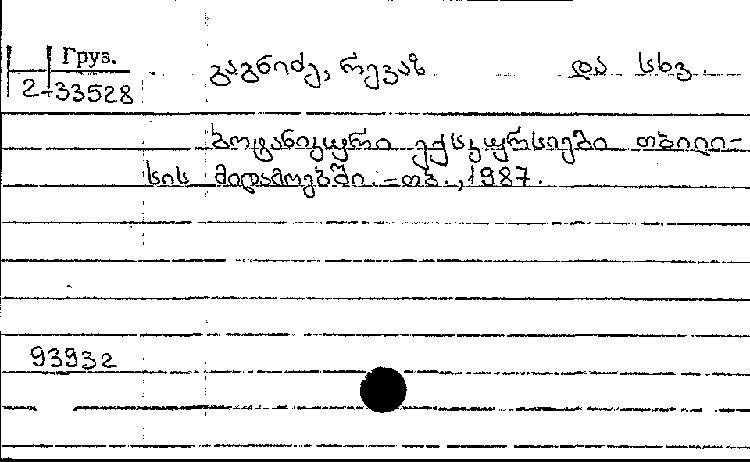 Груз.
2-33528
გაგნიძე, რევაზ და სხვ.
ბოტანიკური ექსკურსიები თბილი-
სის მიდამოებში. - თბ., 1987.
93932